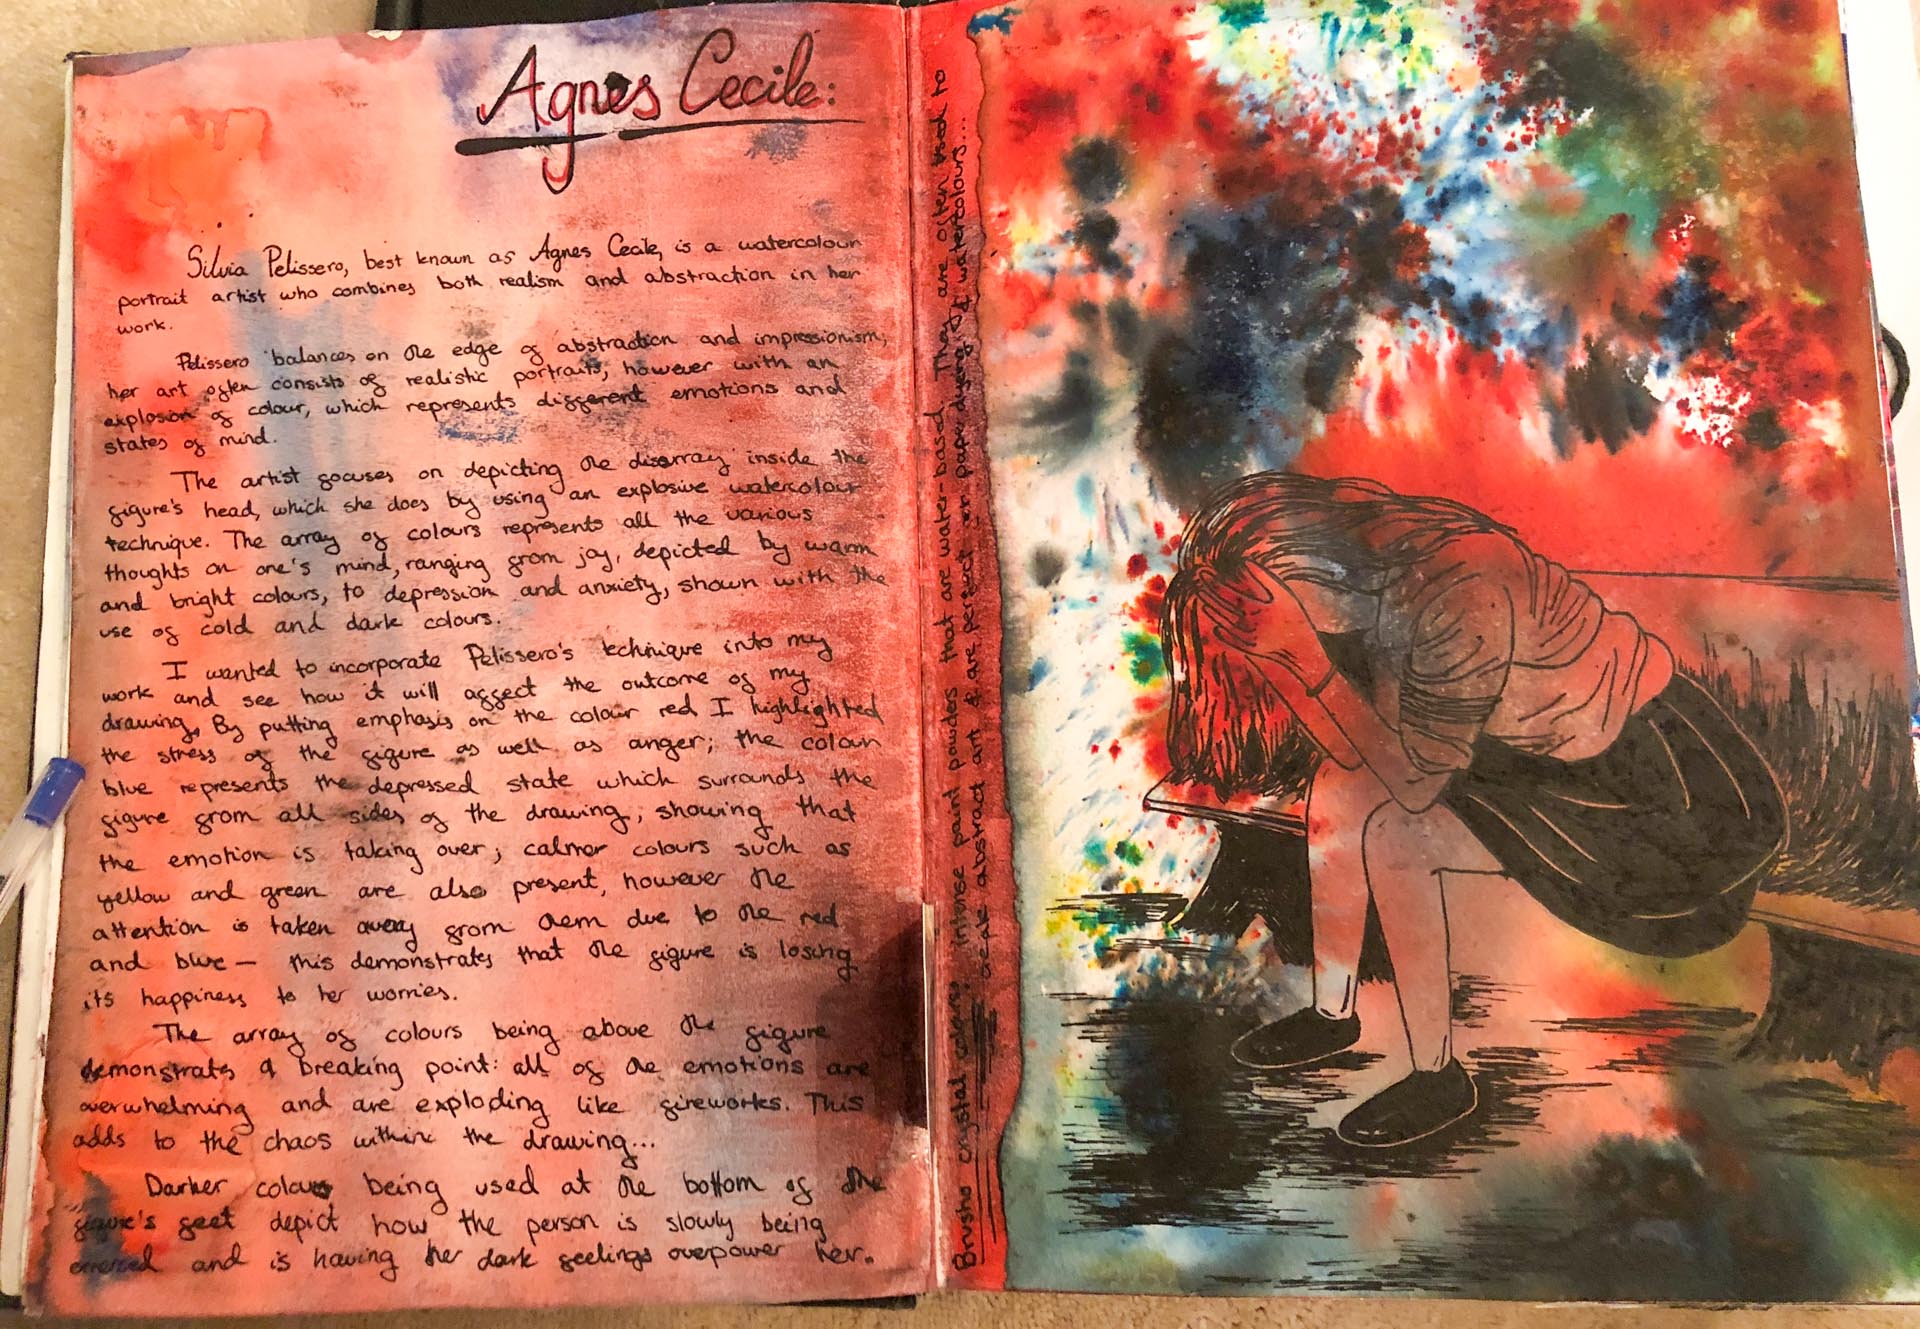 Agnes Cecile:
Silvia Pelissero, best known as Agnes Cecile, is a watercolour
portrait artist who combines both realism and abstraction in her
work.
Pelissero balances on the edge of abstraction and impressionism,
her art often consists of realistic portraits, however with an
explosion of colour, which represents different emotions and
states of mind.
The artist focuses on depicting the disarray inside the
figure's head, which she does by using an explosive watercolour
technique. The array of colours represents all the various
thoughts on one's mind, ranging from joy, depicted by warm
and bright colours, to depression and anxiety, shown with the
use of cold and dark colours.
I wanted to incorporate Pelissero's technique into my
work and see how it will affect the outcome of my
drawing. By putting emphasis on the colour red I highlighted
the stress of the figure as well as anger; the colour
blue represents the depressed state which surrounds the
figure from all sides of the drawing, showing that
the emotion is taking over; calmer colours such as
yellow and green are also present, however the
attention is taken away from them due to the red
and blue — this demonstrates that the figure is losing
its happiness to her worries.
The array of colours being above the figure
demonstrates a breaking point: all of the emotions are
overwhelming and are exploding like fireworks. This
adds to the chaos within the drawing...
Darker colours being used at the bottom of the
figure's feet depict how the person is slowly being
and is having her dark feelings overpower her.
Brusho crystal colours: intense paint powders that are water-based. They are often used to
abstract art & are perfect for paper dyeing & watercolours...